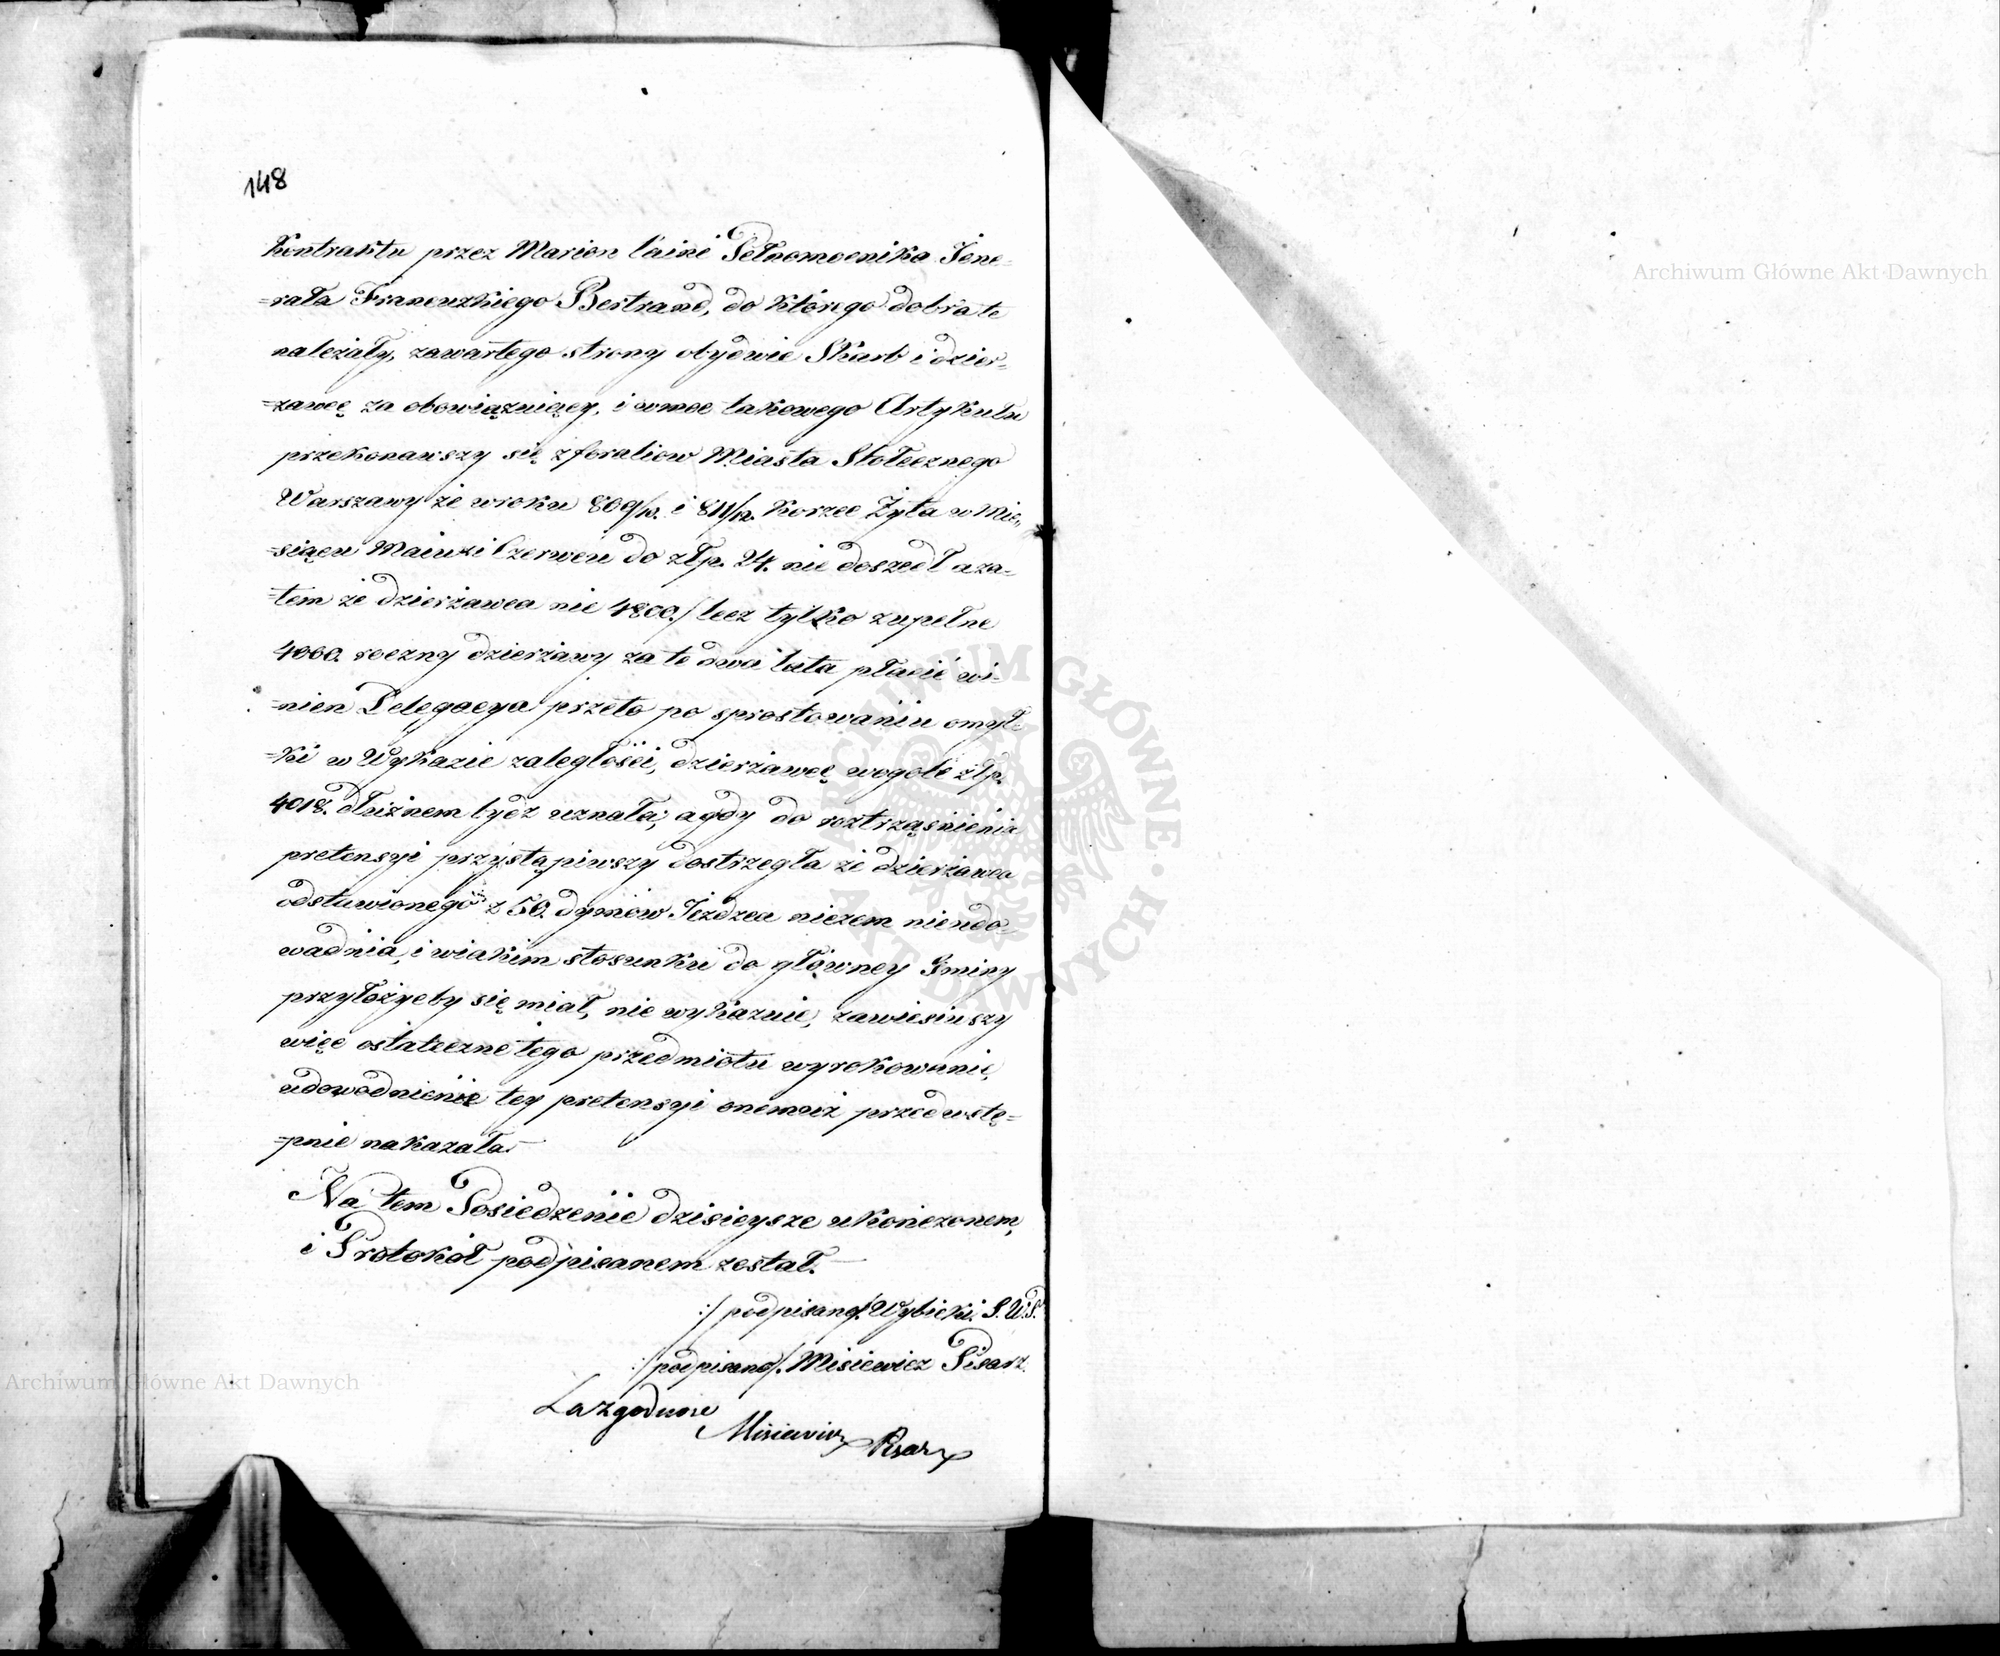 148
Kontraktu przez Marion lainé Pełnomocnika Jene-
=rała Francuzkiego Bertrand, do którego dobra te
należały, zawartego strony obydwie Skarb i dzier-
=zawcę za obowiązuiącey, i w moc takowego Artykułu
przekonawszy się z foraliow Miasta Stołecznego
Warszawy że w roku 809/10. i 811/12. Korzec Żyta w Mie-
=siącu Maiu i Czerwcu do złp. 24. nie doszedł a za-
=tem że dzierżawca nie 4800./ lecz tylko zupełne
4000. roczny dzierżawy za te dwa lata płacić wi-
=nien Delegacya przeto po sprostowaniu omył-
=ki w Wykazie zaległości, dzierżawcę wogole złp.
4018. dłużnem bydz uznała; a gdy do roztrząśnienia
pretensyi przystąpiwszy dostrzegła że dzierżawca
odstawionego z 50. dymów Jezdzca niczem nieudo-
wadnia, i w iakim stosunku do główney Gminy
przyłożyćby się miał, nie wykazuie, zawiesiwszy
więc ostateczne tego przedmiotu wyrokowanie,
udowodnienie tey pretensyi onemuż przedwstę=
=pnie nakazała.
Na tem Posiedzenie dzisieysze ukończonem,
i Protokół podpisanem został.
:/ podpisano/. Wybicki. S. W. P.
:/ podpisano/. Misiewicz Pisarz.
Za zgodność
Misiewicz Pisarz
Archiwum Główne Akt Dawnych
Archiwum Główne Akt Dawnych
ARCHIWUM GŁÓWNE · AKT DAWNYCH ·